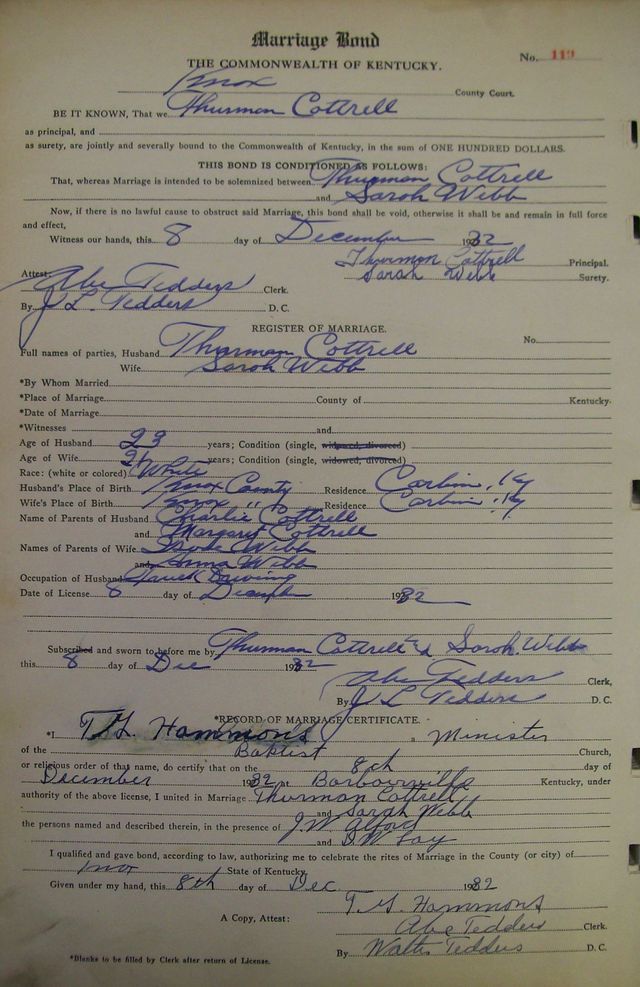 Marriage Bond
No. 119
THE COMMONWEALTH OF KENTUCKY.
Knox County Court.
BE IT KNOWN, That we Thurman Cottrell
as principal, and
as surety, are jointly and severally bound to the Commonwealth of Kentucky, in the sum of ONE HUNDRED DOLLARS.
THIS BOND IS CONDITIONED AS FOLLOWS:
That, whereas Marriage is intended to be solemnized between Thurman Cottrell
and Sarah Webb
Now, if there is no lawful cause to obstruct said Marriage, this bond shall be void, otherwise it shall be and remain in full force
and effect,
Witness our hands, this 8 day of December 1932
Thurman Cottrell Principal.
Sarah Webb Surety.
Attest: Abe Tedders Clerk.
By J L. Tedders D. C.
REGISTER OF MARRIAGE.
No.
Full names of parties, Husband Thurman Cottrell
Wife Sarah Webb
*By Whom Married
*Place of Marriage County of Kentucky.
*Date of Marriage
*Witnesses and
Age of Husband 23 years; Condition (single, widowed, divorced)
Age of Wife years; Condition (single, widowed, divorced)
Race: (white or colored) White
Husband's Place of Birth Knox County Residence Corbin, Ky
Wife's Place of Birth Knox " Residence Corbin, Ky
Name of Parents of Husband Charlie Cottrell
and Margaret Cottrell
Names of Parents of Wife Webb
and Anna Webb
Occupation of Husband Truck Driving
Date of License 8 day of December 1932
Subscribed and sworn to before me by Thurman Cottrell & Sarah Webb
this 8 day of Dec 1932
Abe Tedders Clerk,
By J L Tedders D. C.
*RECORD OF MARRIAGE CERTIFICATE.
*I T. G. Hammons a Minister
of the Baptist Church,
or religious order of that name, do certify that on the 8th day of
December 1932 at Barbourville Kentucky, under
authority of the above license, I united in Marriage Thurman Cottrell
and Sarah Webb
the persons named and described therein, in the presence of J. W. Alford
and D. W. Lay
I qualified and gave bond, according to law, authorizing me to celebrate the rites of Marriage in the County (or city) of
Knox State of Kentucky
Given under my hand, this 8th day of Dec. 1932
T. G. Hammons
A Copy, Attest: Abe Tedders Clerk.
By Walter Tedders D. C.
*Blanks to be filled by Clerk after return of License.